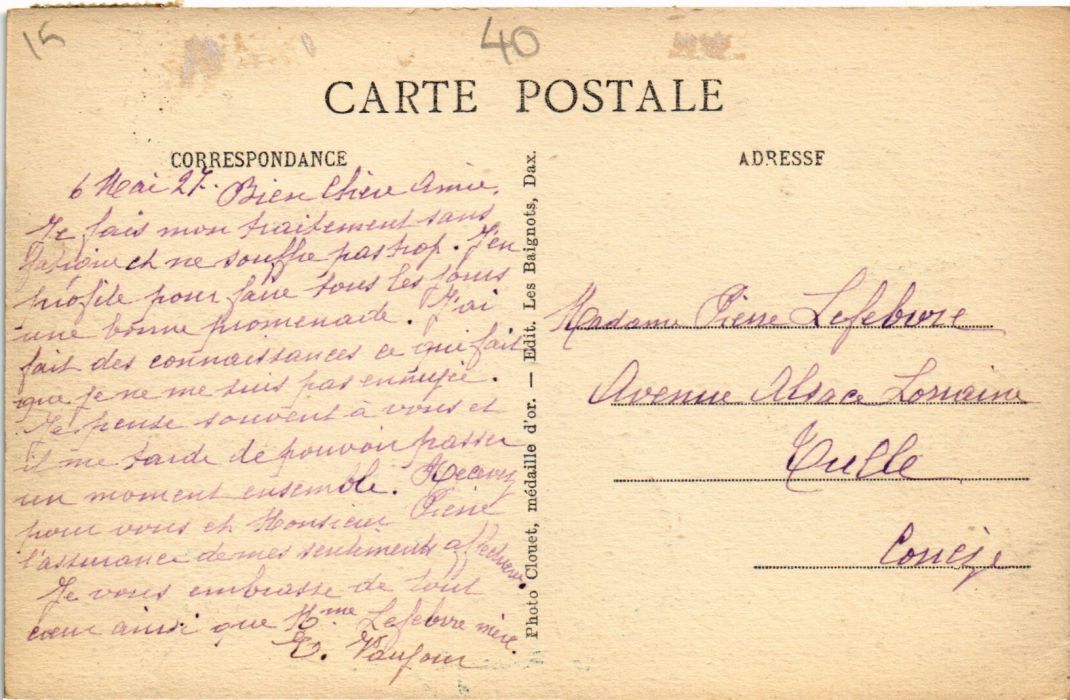 15
40
CARTE POSTALE
CORRESPONDANCE
6 Mai 27. Bien Chère Amie,
Je fais mon traitement sans
fatigue et ne souffre pas trop. J'en
profite pour faire tous les jours
une bonne promenade. J'ai
fait des connaissances ce qui fait
que je ne me suis pas ennuyée.
Je pense souvent à vous et
il me tarde de pouvoir passer
un moment ensemble. Recevez
pour vous et Monsieur Pierre
l'assurance de mes sentiments affectueux.
Je vous embrasse de tout
cœur ainsi que Mme Lefebvre mère.
Photo Clouet, médaille d'or. — Edit. Les Baignots, Dax.
ADRESSE
Madame Pierre Lefebvre
Avenue Alsace Lorraine
Tulle
Corrèze